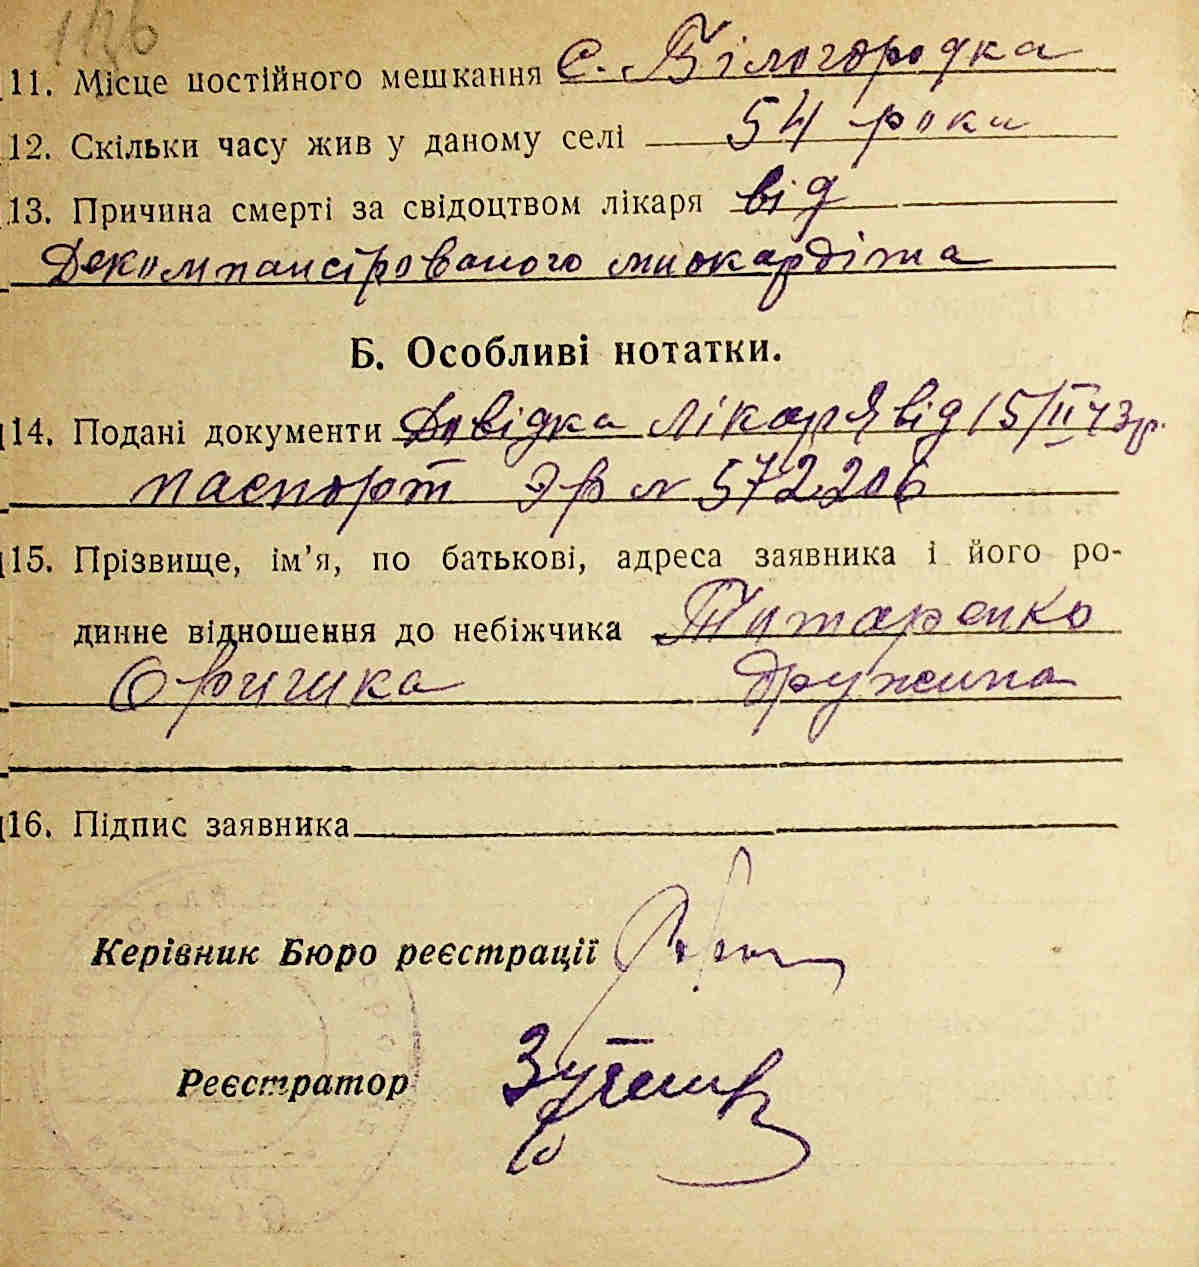 11. Місце постійного мешкання с. Білогородка
12. Скільки часу жив у даному селі 54 роки
13. Причина смерті за свідоцтвом лікаря від
Декомпансірованого миокардіта
Б. Особливі нотатки.
14. Подані документи Довідка лікаря від 15/II 43 р.
паспорт ЭР № 572206
15. Прізвище, ім’я, по батькові, адреса заявника і його ро-
динне відношення до небіжчика Титаренко
Оришка дружина
16. Підпис заявника
Керівник Бюро реєстрації
Реєстратор